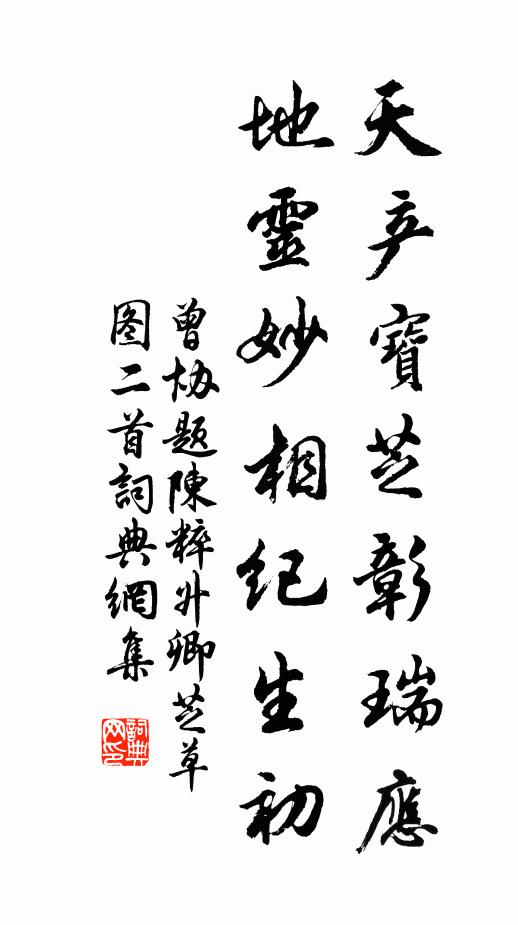 天产寶芝彰瑞應
地靈妙相紀生初
曾协題陳粹外卿芝草
图二首詞典網集
詞典网印